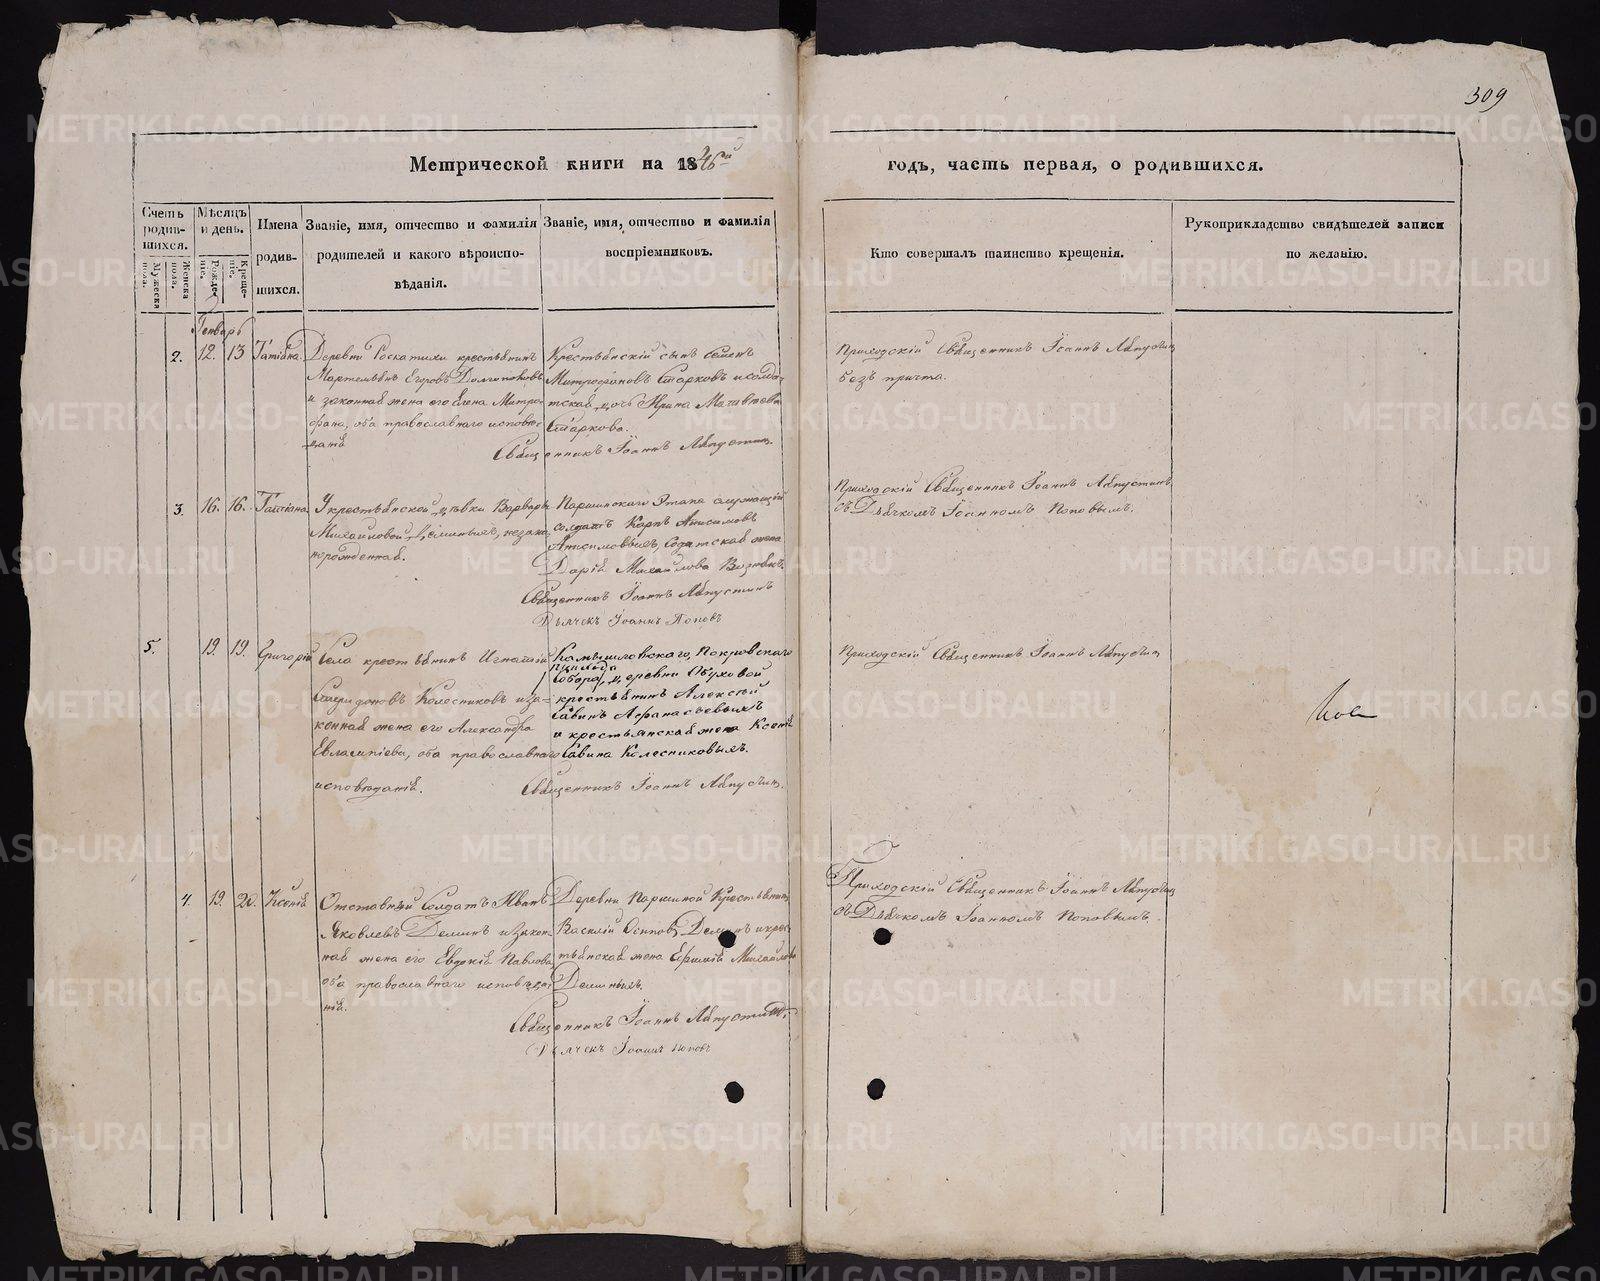 309
Метрической книги на 1846й
годъ, часть первая, о родившихся.
Счетъ родив-
шихся.
Мужеска пола.
Женска пола.
Мѣсяцъ и день.
Рожде-
ніе.
Креще-
ніе.
Имена
родив-
шихся.
Званіе, имя, отчество и фамилія
родителей и какого вѣроиспо-
вѣданія.
Званіе, имя, отчество и фамилія
воспріемниковъ.
Кто совершалъ таинство крещенія.
Рукоприкладство свидѣтелей записи
по желанію.
Генварь
2. 12. 13 Татіана
Деревни Роскатихи крестьянинъ
Егоровъ Долгополовъ
и законная жена его Елена Митро-
фана, оба православнаго исповѣ-
данія
Крестьянскій сынъ Семенъ
Митрофановъ Старковъ и солда-
тская дочь Ирина Матвѣева
Старкова.
Священникъ Іоаннъ
Приходскій Священникъ Іоаннъ
безъ причта.
3. 16. 16. Татіана
У крестьянской дѣвки Варвары
Михайловой незако-
норожденная.
Паршинскаго Этапа служащій
солдатъ Карпъ Анисимовъ
жена
Дарія Михайлова
Священникъ Іоаннъ
Дьячекъ Іоаннъ Поповъ
Приходскій Священникъ Іоаннъ
съ Дьячкомъ Іоанномъ Поповымъ.
5. 19. 19. Григорій
Села крестьянинъ Игнатій
Спиридоновъ Колесниковъ и за-
конная жена его Александра
Евлампіева, оба православнаго
исповѣданія.
Камышловскаго, Покровскаго
прихода
Собора, деревни Обуховой
крестьянинъ Алексѣй
Савинъ Афанасьевыхъ
и крестьянская жена Ксенія
Савина Колесниковыхъ.
Священникъ Іоаннъ
Приходскій Священникъ Іоаннъ
4. 19. 20. Ксенія
Отставный Солдатъ Иванъ
Яковлевъ Деминъ и закон-
ная жена его Евдокія Павлова,
оба православнаго исповѣда-
нія.
Деревни Паршиной Крестьянинъ
Василій Осиповъ Деминъ и крес-
тьянская жена Ефимія Михайлова
Деминыхъ.
Священникъ Іоаннъ
Дьячекъ Іоаннъ Поповъ
Приходскій Священникъ Іоаннъ
съ Дьячкомъ Іоанномъ Поповымъ.
METRIKI.GASO-URAL.RU